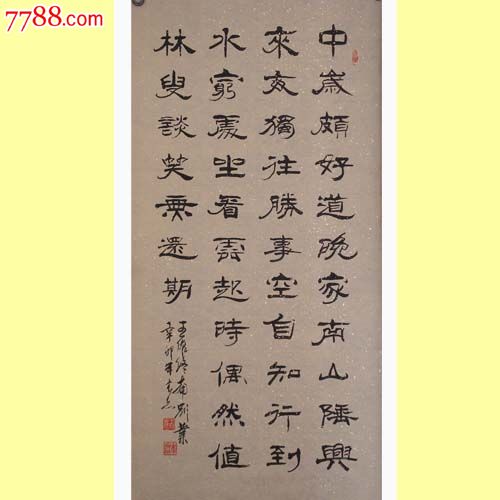 7788.com
中歲頗好道晚家南山陲興
來每獨往勝事空自知行到
水窮處坐看雲起時偶然值
林叟談笑無還期
王維終南別業
辛卯年